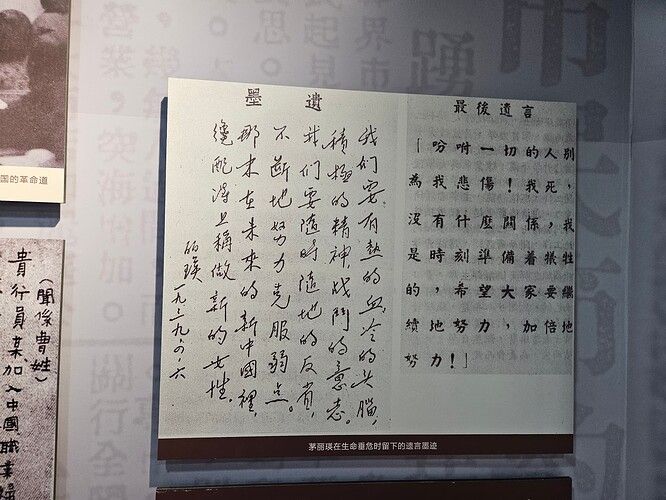 遺墨
我们要有熱的血,冷的头腦,
積極的精神,战鬥的意志。
我们要隨時隨地的反省,
不断地努力克服弱点。
那末在未来的新中國裡,
纔配得上稱做新的女性。
的瑛
一九三九.六.六
最後遺言
「吩咐一切的人別
為我悲傷！我死，
沒有什麼關係，我
是時刻準備着犧牲
的，希望大家要繼
續地努力，加倍地
努力！」
茅丽瑛在生命垂危时留下的遗言墨迹
国的革命道
(聞係曹姓)
貴行員某加入中國職業